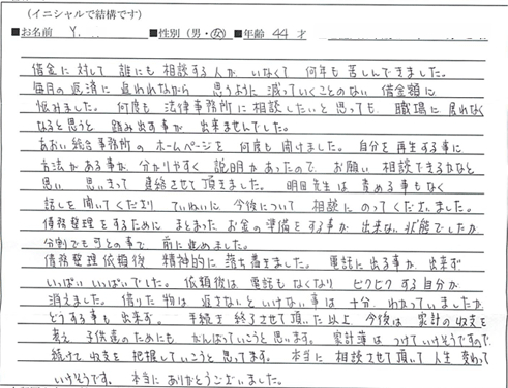 (イニシャルで結構です)
■お名前 Y. ■性別(男・女) ■年齢 44 才
借金に対して 誰にも 相談する人が いなくて 何年も 苦しんできました。
毎月の 返済に 追われながら 思うように 減っていくことのない 借金額に
悩みました。 何度も 法律事務所に 相談したいと 思っても 職場に 居れなく
なると思うと 踏み出す事が 出来ませんでした。
あおい総合事務所の ホームページを 何度も 開けました。 自分を 再生する事に
方法がある事が 分かりやすく 説明があったので お願い 相談できるかなと
思い 思いきって 連絡させて 頂きました。 明田先生は 責める事もなく
話しを 聞いてくださり ていねいに 今後について 相談に のってくださいました。
債務整理をするために まとまった お金の準備をする事が 出来ない 状態でしたが
分割でも可との事で 前に進めました。
債務整理依頼後 精神的に 落ち着きました。 電話に出る事が 出来ず
いっぱい いっぱいでした。 依頼後は 電話もなくなり ビクビクする自分が
消えました。 借りた物は 返さないと いけない事は 十分 わかっていましたが
どうする事も 出来ず。 手続を 終了させて頂いた以上 今後は 家計の収支を
考え 子供達のためにも がんばっていこうと思います。 家計簿は つけていけそうですので
続けて 収支を 把握していこうと 思ってます。 本当に 相談させて頂いて 人生 変わって
いけそうです。 本当に ありがとうございました。